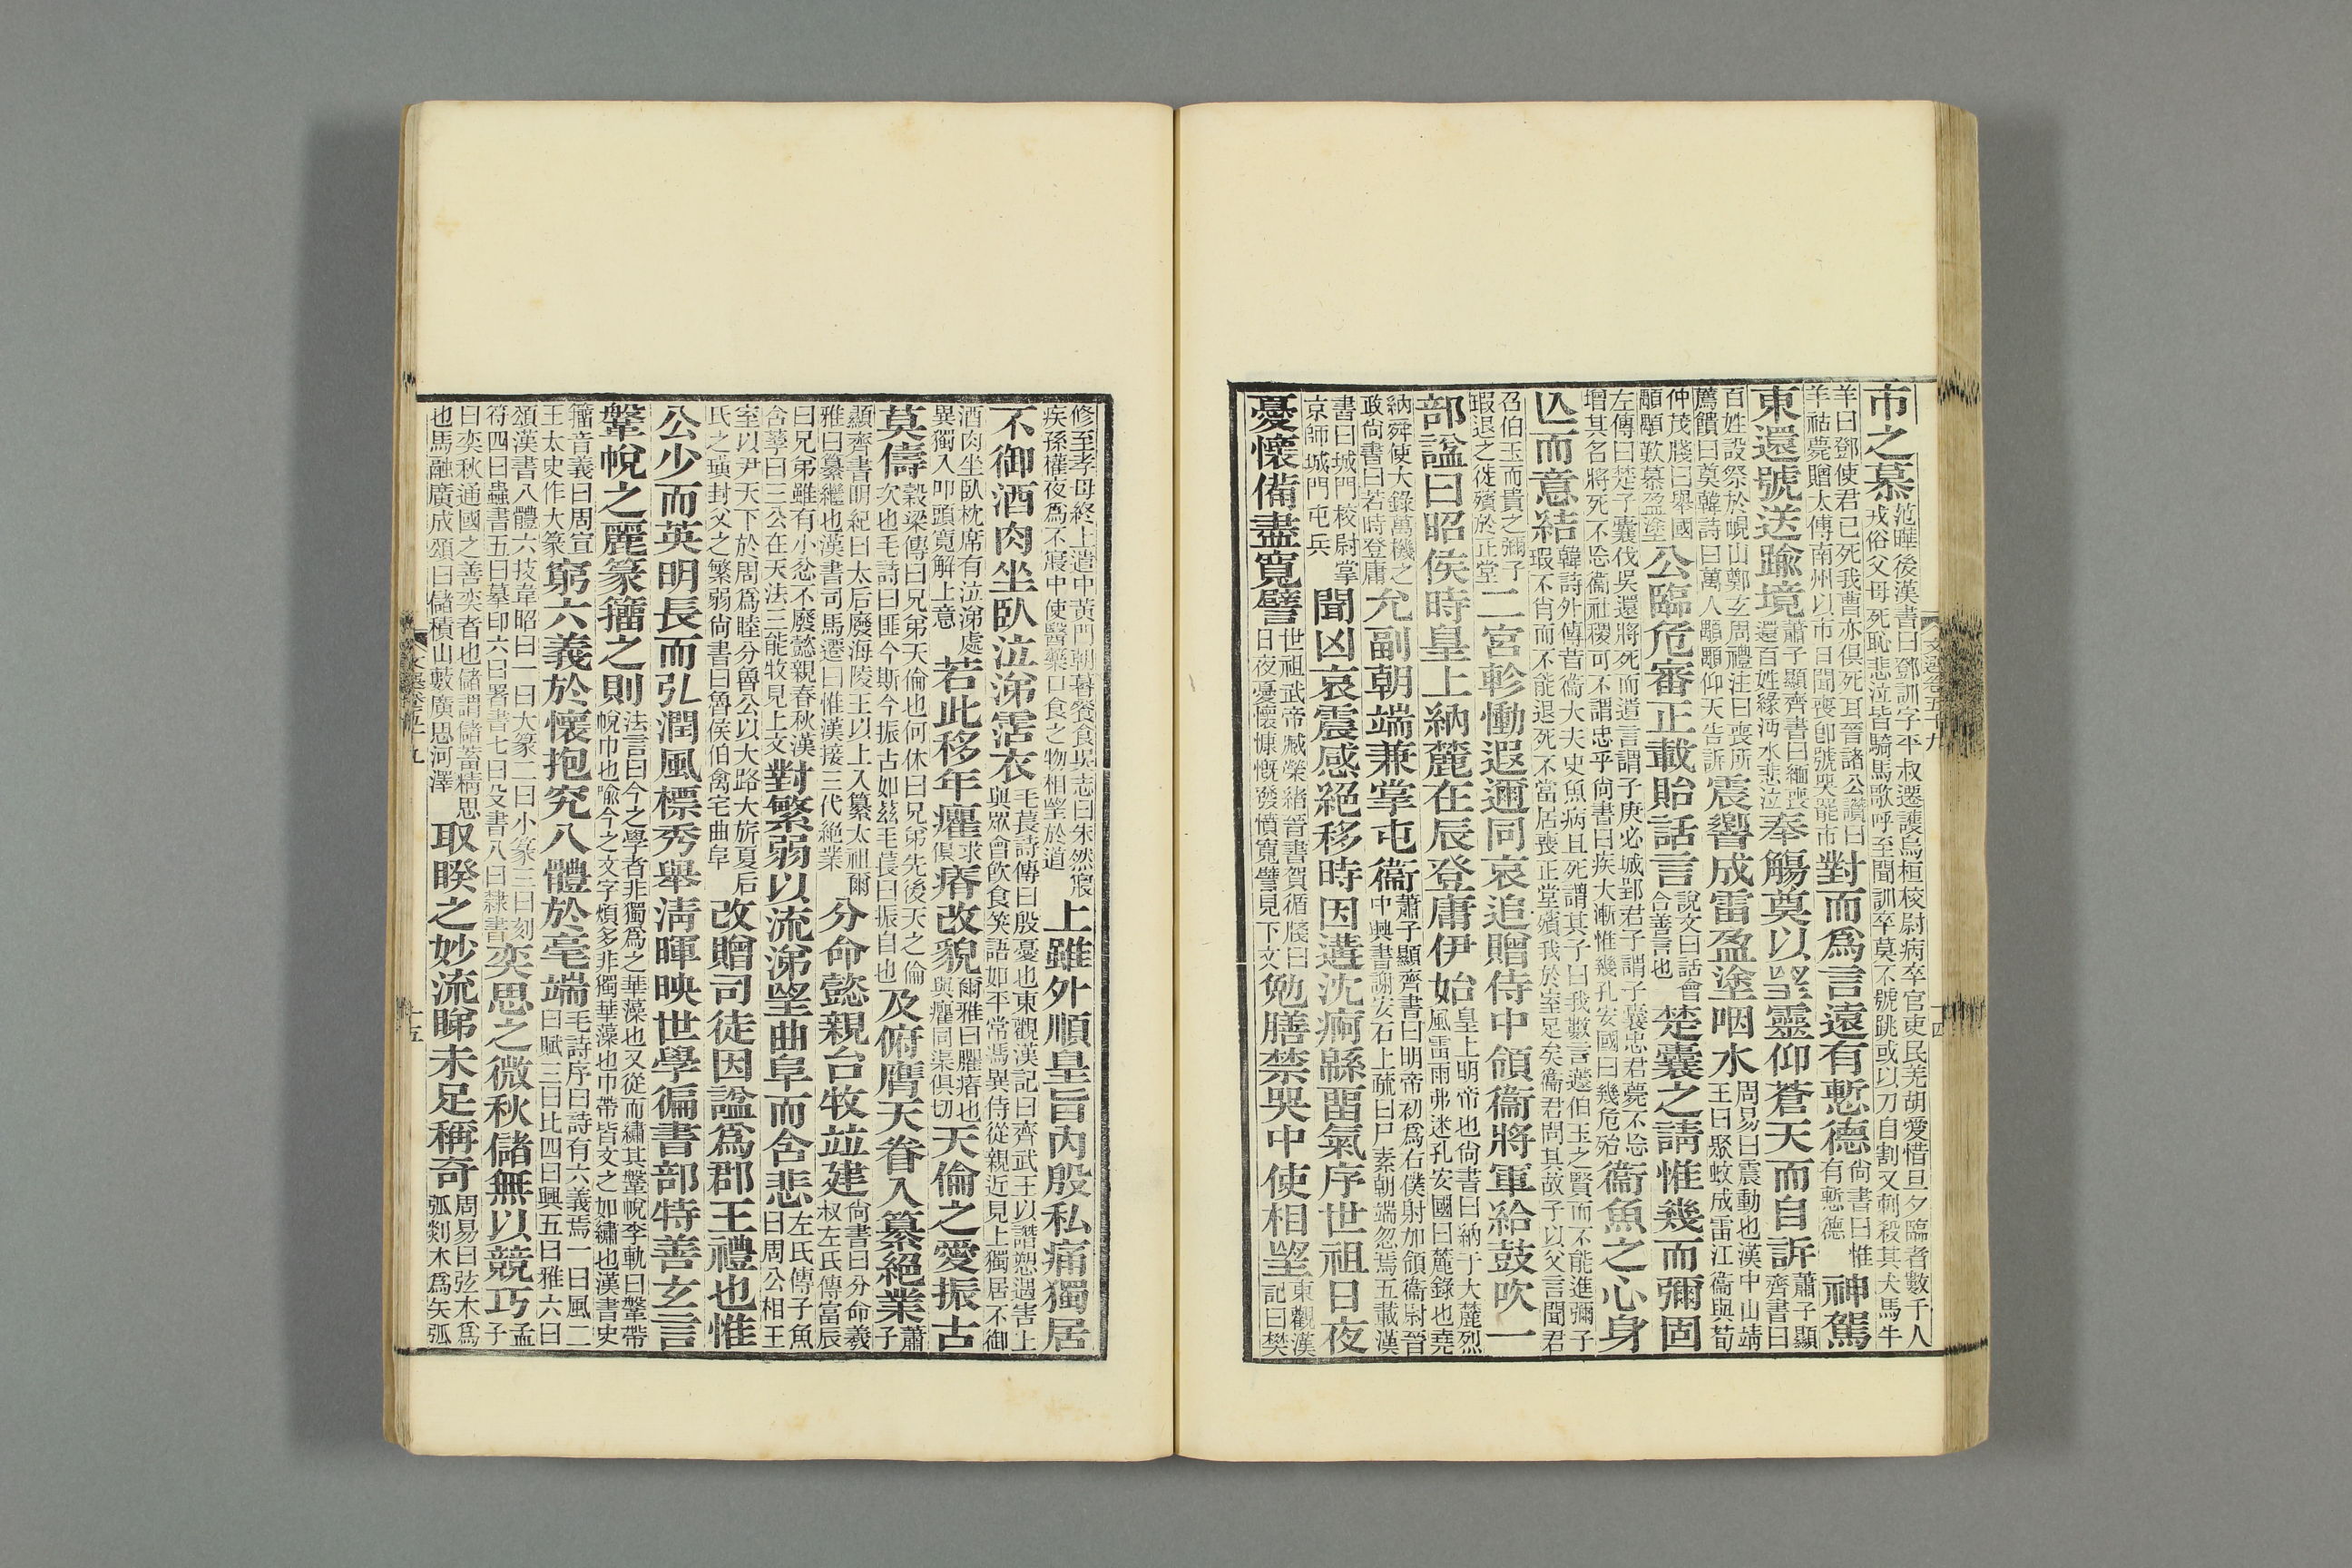 市之慕范曄後漢書曰鄧訓字平叔遷護烏桓校尉病卒官吏民羌胡愛惜旦夕臨者數千人戎俗父母死恥悲泣皆騎馬歌呼至聞訓卒莫不號咷或以刀自割又刺殺其犬馬牛
羊曰鄧使君已死我曹亦俱死耳晉諸公讚曰羊祜薨贈太傅南州以市日聞喪卽號哭罷市對而爲言遠有慙德尚書曰惟有慙德神駕
東還號送踰境蕭子顯齊書曰緬喪還百姓緣沔水悲泣奉觴奠以望靈仰蒼天而自訴蕭子顯齊書曰
百姓設祭於峴山鄭玄周禮注曰喪所薦饋曰奠韓詩曰萬人顒顒仰天告訴震響成雷盈塗咽水周易曰震動也漢中山靖王曰聚蚊成雷江衞與荀
仲茂牋曰舉國顒顒歎慕盈塗公臨危審正載貽話言說文曰話會合善言也楚囊之請惟幾而彌固
左傳曰楚子囊伐吳還將死而遺言謂子庚必城郢君子謂子囊忠君薨不忘增其名將死不忘衞社稷可不謂忠乎尚書曰疾大漸惟幾孔安國曰幾危殆衞魚之心身
亾而意結韓詩外傳昔衞大夫史魚病且死謂其子曰我數言蘧伯玉之賢而不能進彌子瑕不肖而不能退死不當居喪正堂殯我於室足矣衞君問其故子以父言聞君
召伯玉而貴之彌子瑕退之徙殯於正堂二宮軫慟遐邇同哀追贈侍中領衞將軍給鼓吹一
部諡曰昭侯時皇上納麓在辰登庸伊始皇上明帝也尚書曰納于大麓烈風雷雨弗迷孔安國曰麓錄也堯
納舜使大錄萬機之政尚書曰若時登庸允副朝端兼掌屯衞蕭子顯齊書曰明帝初爲右僕射加領衞尉晉中興書謝安石上疏曰尸素朝端忽焉五載漢
書曰城門校尉掌京師城門屯兵聞凶哀震感絕移時因遘沈痾緜留氣序世祖日夜
憂懷備盡寬譬世祖武帝臧榮緒晉書賀循牋曰日夜憂懷慷慨發憤寬譬見下文勉膳禁哭中使相望東觀漢記曰樊
文選卷五十九
十四
修至孝母終上遣中黃門朝暮餐食吳志曰朱然寢疾孫權夜爲不寢中使醫藥口食之物相望於道上雖外順皇旨內殷私痛獨居
不御酒肉坐臥泣涕霑衣毛萇詩傳曰殷憂也東觀漢記曰齊武王以譖愬遇害上與眾會飲食笑語如平常馮異侍從親近見上獨居不御
酒肉坐臥枕席有泣涕處異獨入叩頭寬解上意若此移年癯瘠改貌爾雅曰臞瘠也與癯同渠俱切天倫之愛振古
莫儔穀梁傳曰兄弟天倫也何休曰兄弟先後天之倫次也毛詩曰匪今斯今振古如茲毛萇曰振自也及俯膺天眷入纂絕業蕭子
顯齊書明紀曰太后廢海陵王以上入纂太祖爾雅曰纂繼也漢書司馬遷曰惟漢接三代絕業分命懿親台牧竝建尚書曰分命羲叔左氏傳富辰
曰兄弟雖有小忿不廢懿親春秋漢含孳曰三公在天法三能牧見上文對繁弱以流涕望曲阜而含悲左氏傳子魚曰周公相王
室以尹天下於周爲睦分魯公以大路大旂夏后氏之璜封父之繁弱尚書曰魯侯伯禽宅曲阜改贈司徒因諡爲郡王禮也惟
公少而英明長而弘潤風標秀舉淸暉映世學徧書部特善玄言
鞶帨之麗篆籒之則法言曰今之學者非獨爲之華藻也又從而繡其鞶帨李軌曰鞶帶帨巾也喩今之文字煩多非獨華藻也巾帶皆文之如繡也漢書史
籒音義曰周宣王太史作大篆窮六義於懷抱究八體於毫端毛詩序曰詩有六義焉一曰風二曰賦三曰比四曰興五曰雅六曰
頌漢書八體六技韋昭曰一曰大篆二曰小篆三曰刻符四曰蟲書五曰摹印六曰署書七曰殳書八曰隸書奕思之微秋儲無以競巧孟子
曰奕秋通國之善奕者也儲謂儲蓄精思也馬融廣成頌曰儲積山藪廣思河澤取睽之妙流睇未足稱奇周易曰弦木爲弧剡木爲矢弧
文選卷五十九
十五